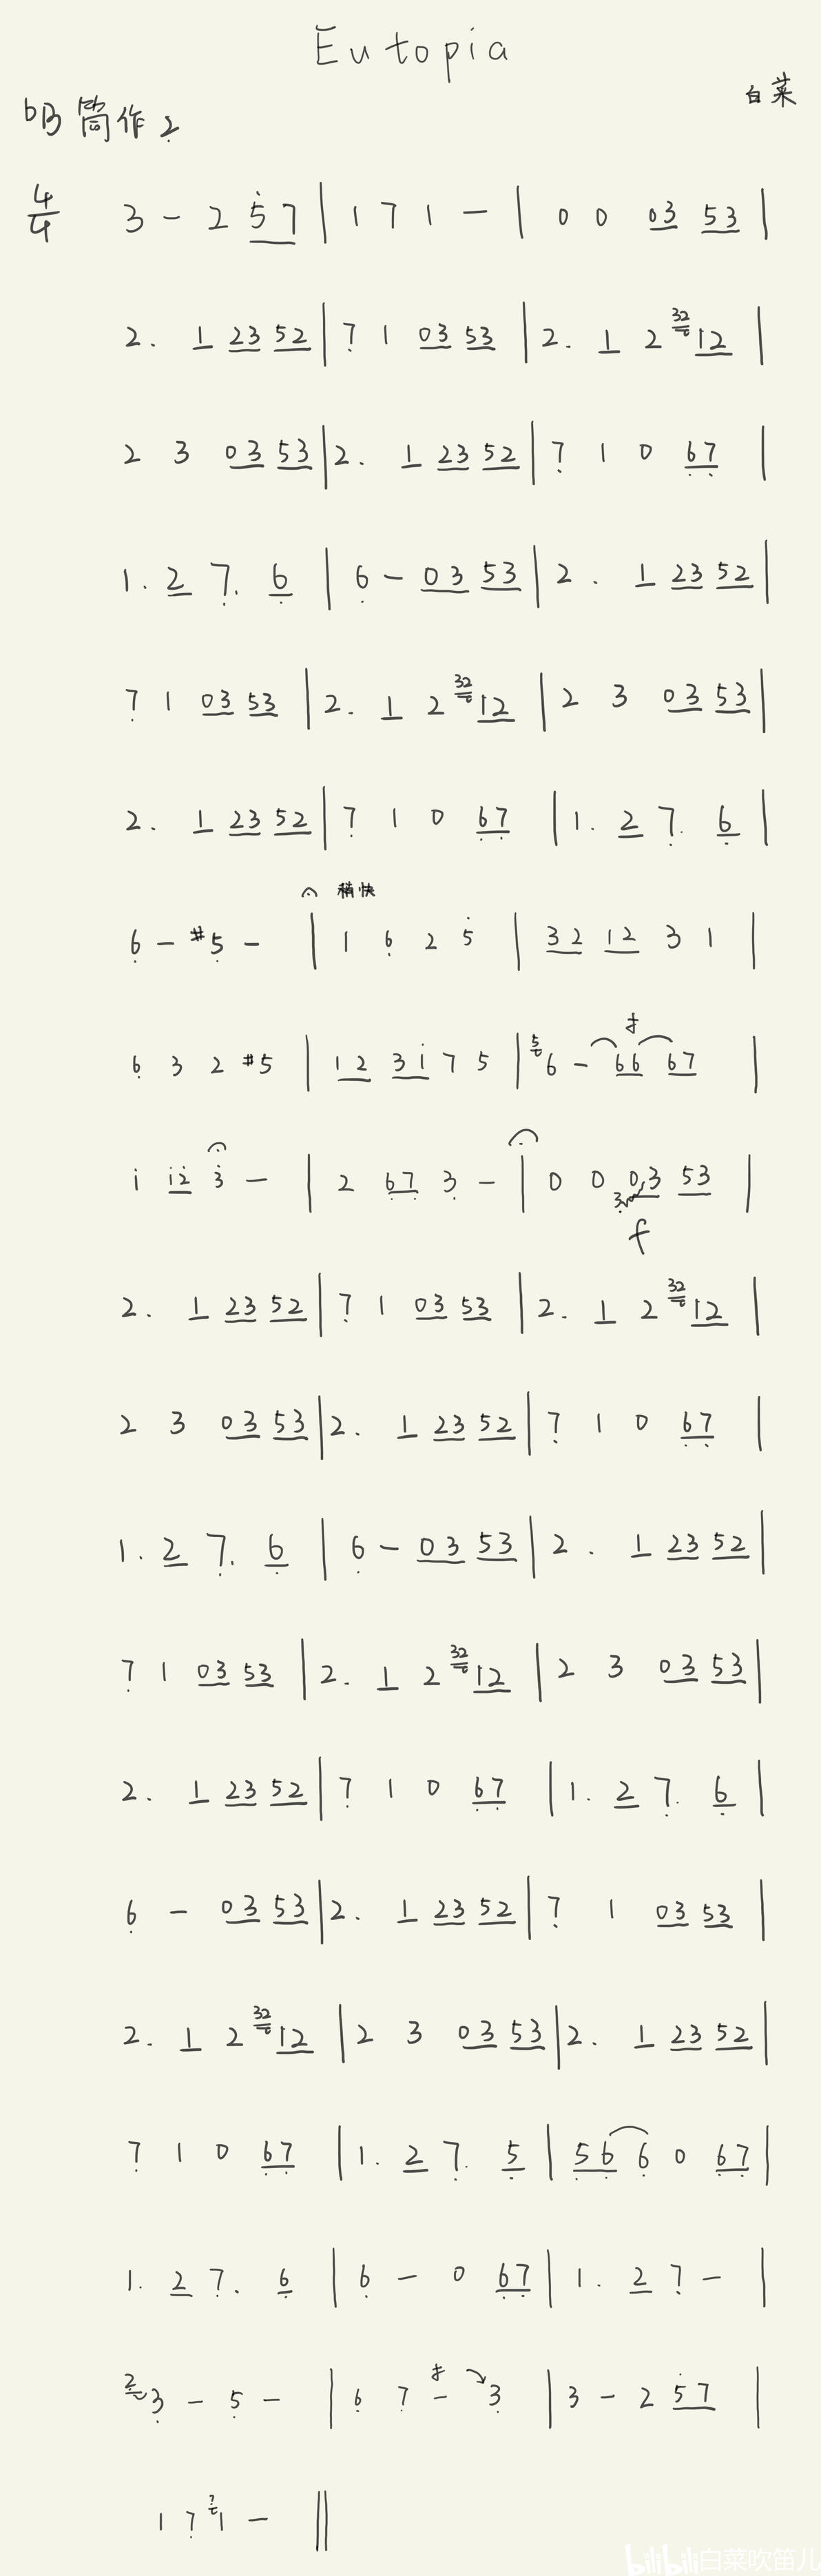 Eutopia
白菜
bB 筒作 2
4/4 3 - 2 5 7 | 1 7 1 - | 0 0 0 3 5 3 |
2. 1 2 3 5 2 | 7 1 0 3 5 3 | 2. 1 2 32 1 2 |
2 3 0 3 5 3 | 2. 1 2 3 5 2 | 7 1 0 6 7 |
1. 2 7. 6 | 6 - 0 3 5 3 | 2. 1 2 3 5 2 |
7 1 0 3 5 3 | 2. 1 2 32 1 2 | 2 3 0 3 5 3 |
2. 1 2 3 5 2 | 7 1 0 6 7 | 1. 2 7. 6 |
稍快
6 - #5 - | 1 6 2 5 | 3 2 1 2 3 1 |
6 3 2 #5 | 1 2 3 1 7 5 | 5 6 - 6 6 6 7 |
1 1 2 3 - | 2 6 7 3 - | 0 0 0 3 5 3 |
f
2. 1 2 3 5 2 | 7 1 0 3 5 3 | 2. 1 2 32 1 2 |
2 3 0 3 5 3 | 2. 1 2 3 5 2 | 7 1 0 6 7 |
1. 2 7. 6 | 6 - 0 3 5 3 | 2. 1 2 3 5 2 |
7 1 0 3 5 3 | 2. 1 2 32 1 2 | 2 3 0 3 5 3 |
2. 1 2 3 5 2 | 7 1 0 6 7 | 1. 2 7. 6 |
6 - 0 3 5 3 | 2. 1 2 3 5 2 | 7 1 0 3 5 3 |
2. 1 2 32 1 2 | 2 3 0 3 5 3 | 2. 1 2 3 5 2 |
7 1 0 6 7 | 1. 2 7. 5 | 5 6 6 0 6 7 |
1. 2 7. 6 | 6 - 0 6 7 | 1. 2 7 - |
2 3 - 5 - | 6 7 - 3 | 3 - 2 5 7 |
1 7 7 1 - ||
bilibili 白菜吹笛儿